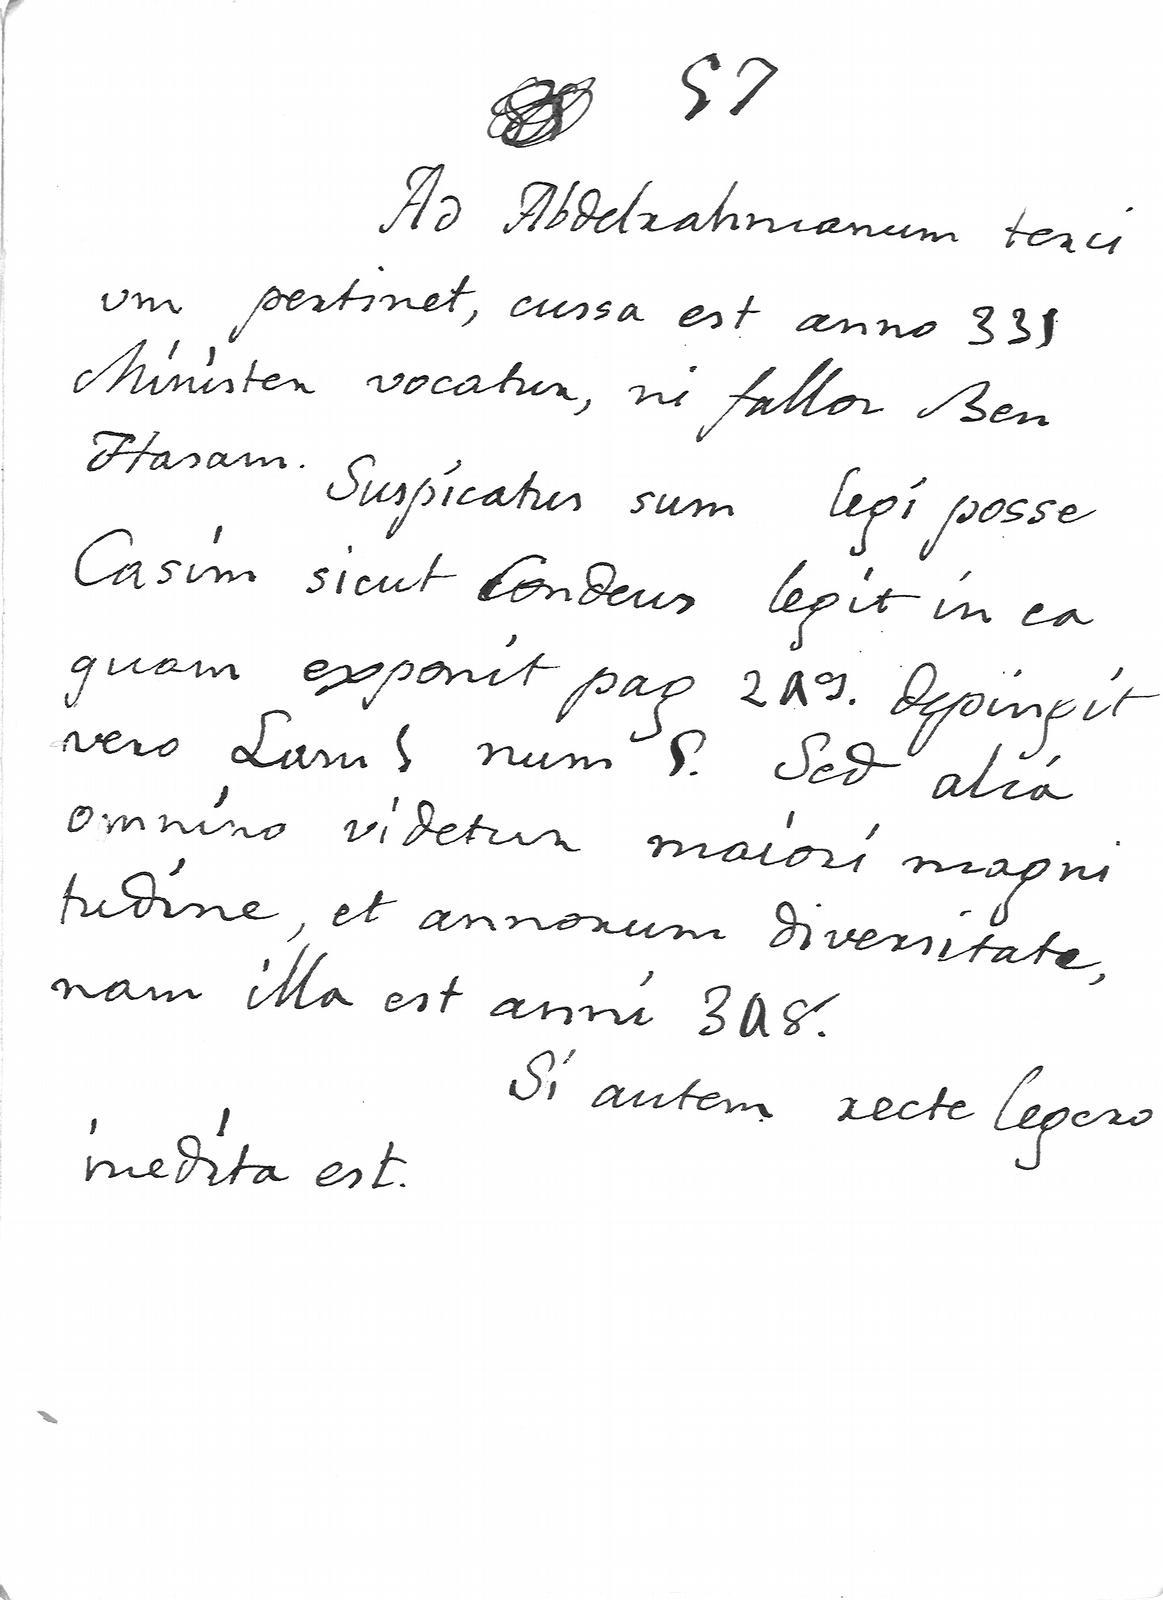 57
Ad Abdelrahmanum terci
um pertinet, cussa est anno 331
Minister vocatur, ni fallor Ben
Hasam. Suspicatus sum legi posse
Casim sicut Condeus legit in ea
quam exponit pag 249. depingit
vero Lam 5 num 5. Sed alia
omnino videtur maiori magni
tudine, et annorum diversitate,
nam illa est anni 348.
Si autem recte legero
inedita est.